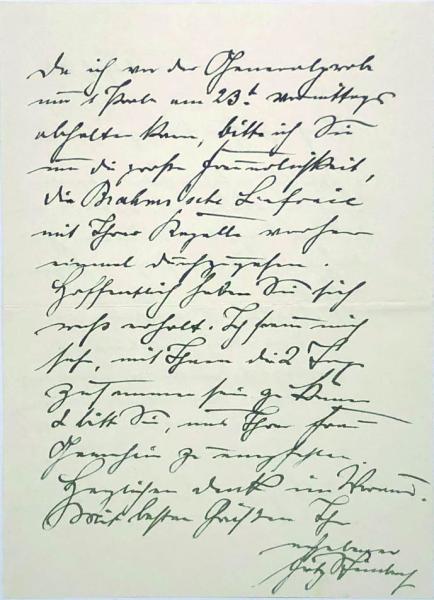 Da ich vor der Generalprobe
nur 1 Probe am 23t. Vormittags
abhalten kann, bitte ich Sie
um die große Freundlichkeit,
die Brahms'sche Sinfonie
mit Ihrer Kapelle vorher
einmal durchzugehen.
Hoffentlich haben Sie sich
recht erholt. Ich freue mich
sehr, mit Ihnen die 2 Tage
zusammen sein zu können
& bitte Sie, mich Ihrer Frau
Gemahlin zu empfehlen.
Herzlichen Dank im Voraus.
Mit besten Grüßen Ihr
ergebener
Fritz Steinbach